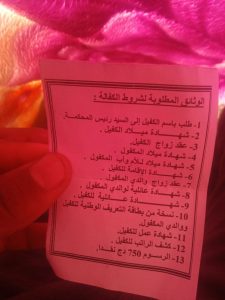 الوثائق المطلوبة لشروط الكفالة :
1- طلب باسم الكفيل إلى السيد رئيس المحكمة.
2- شهادة ميلاد الكفيل.
3- عقد زواج الكفيل.
4- شهادة ميلاد المكفول.
5- شهادة ميلاد للأبوات المكفول.
6- شهادة الإقامة للكفيل.
7- عقد زواج والدي المكفول.
8- شهادة عائلية لوالدي المكفول.
9- شهادة عائلية للكفيل.
10- نسخة من بطاقة التعريف الوطنية للكفيل
ووالدي المكفول.
11- شهادة عمل للكفيل.
12- كشف الراتب للكفيل.
13- الرسوم 750 دج نقدا.